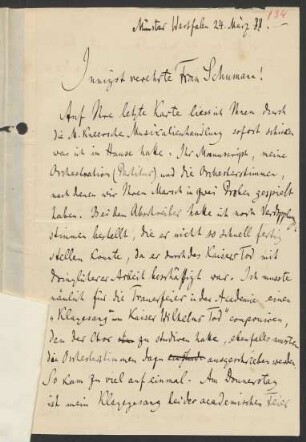 134
Münster Westfalen 24. März 88.
Innigst verehrte Frau Schumann!
Auf Ihre letzte Karte liess ich Ihnen durch
die Musicalienhandlung sofort schicken
was ich im Hause hatte. Ihr Manuscript, meine
Orchestration (Partitur) und die Orchesterstimmen,
nach denen wir Ihren Marsch in zwei Proben gespielt
haben. Bei dem Abschreiber hatte ich noch
stimmen bestellt, die er nicht so schnell fertig
stellen konnte, da er durch des Kaisers Tod mit
dringlicherer Arbeit beschäftigt war. Ich musste
nämlich für die Trauerfeier in der Academie einen
„Klagesang um Kaiser Wilhelms Tod" componiren,
den der Chor zu studiren hatte, ebenfalls mussten
die Orchesterstimmen dazu ausgeschrieben werden.
So kam zu viel auf einmal. Am Donnerstag
ist mein Klagegesang bei der academischen Feier